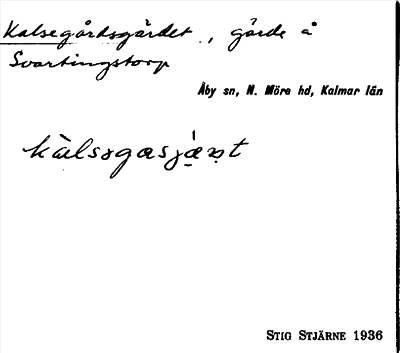 Kalsegårdsgärdet, gärde å
Svartingstorp
Åby sn, N. Möre hd, Kalmar län
STIG STJÄRNE 1936